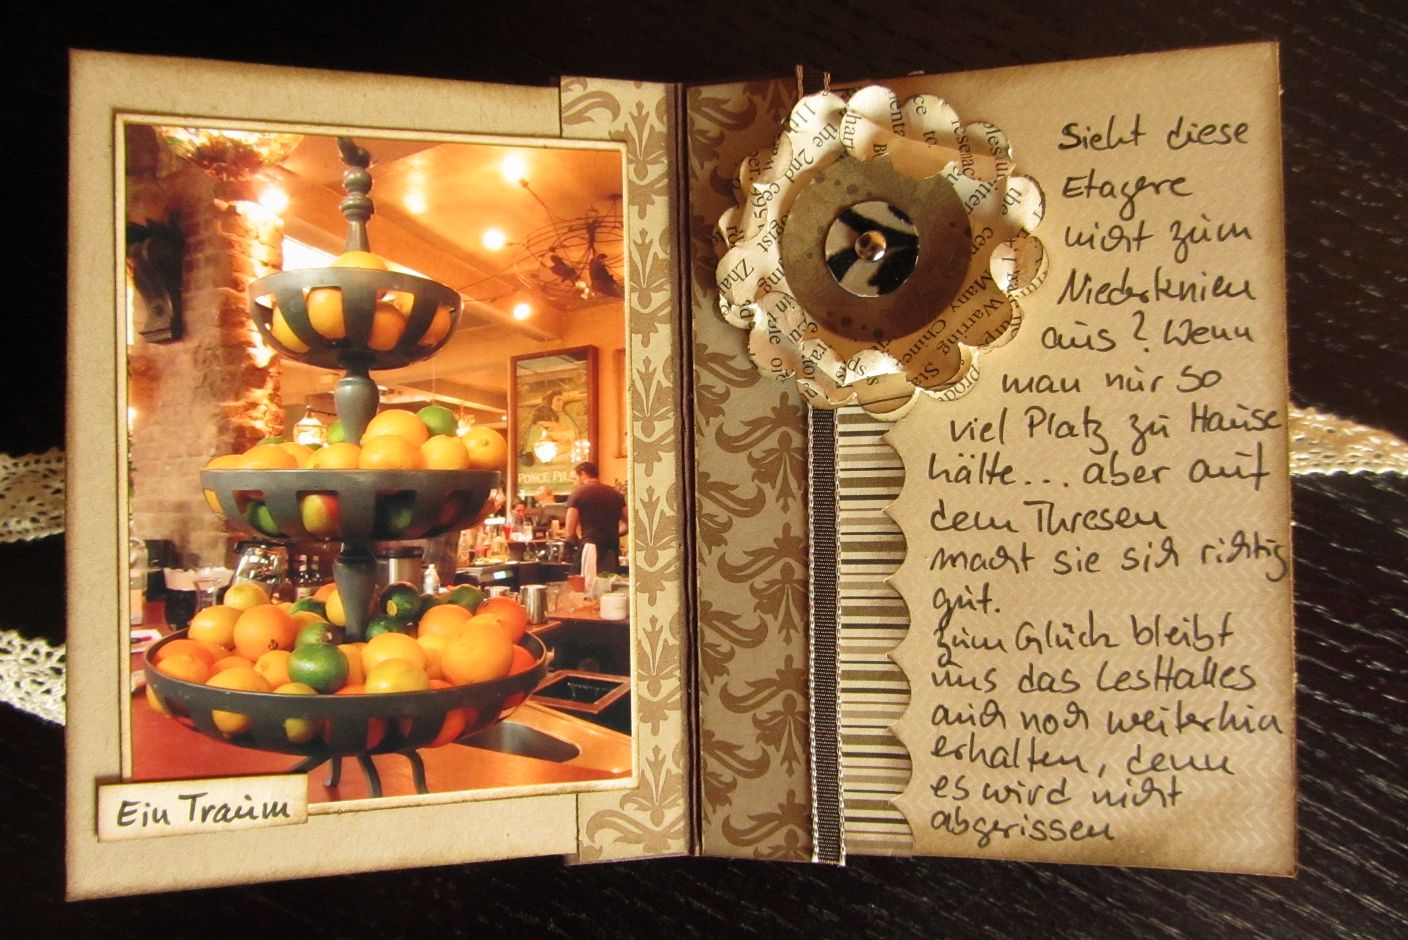 Ein Traum
PONCE PILS
Sieht diese
Etagere
nicht zum
Niederknien
aus? Wenn
man nur so
viel Platz zu Hause
hätte... aber auf
dem Thresen
macht sie sich richtig
gut.
zum Glück bleibt
uns das LesHalles
auch noch weiterhin
erhalten, denn
es wird nicht
abgerissen
the 2nd ce
Many Chine
Warring Sta